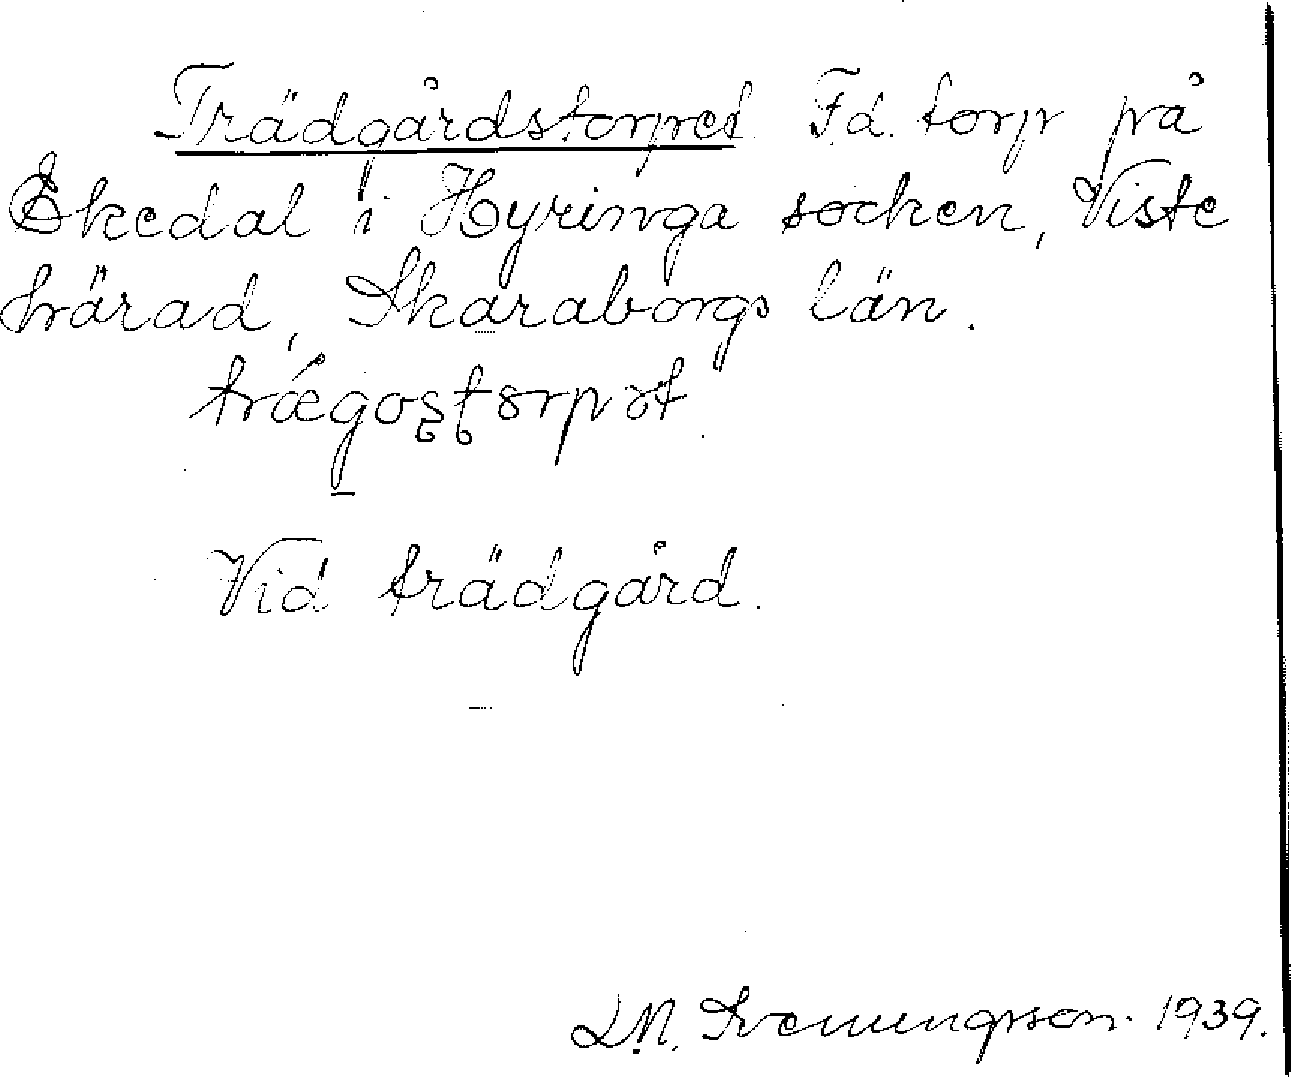 Trädgårdstorpet. F.d. torp på
Ekedal i Hyringa socken, Viste
härad, Skaraborgs län.
Vid trädgård.
Svenungsson. 1939.